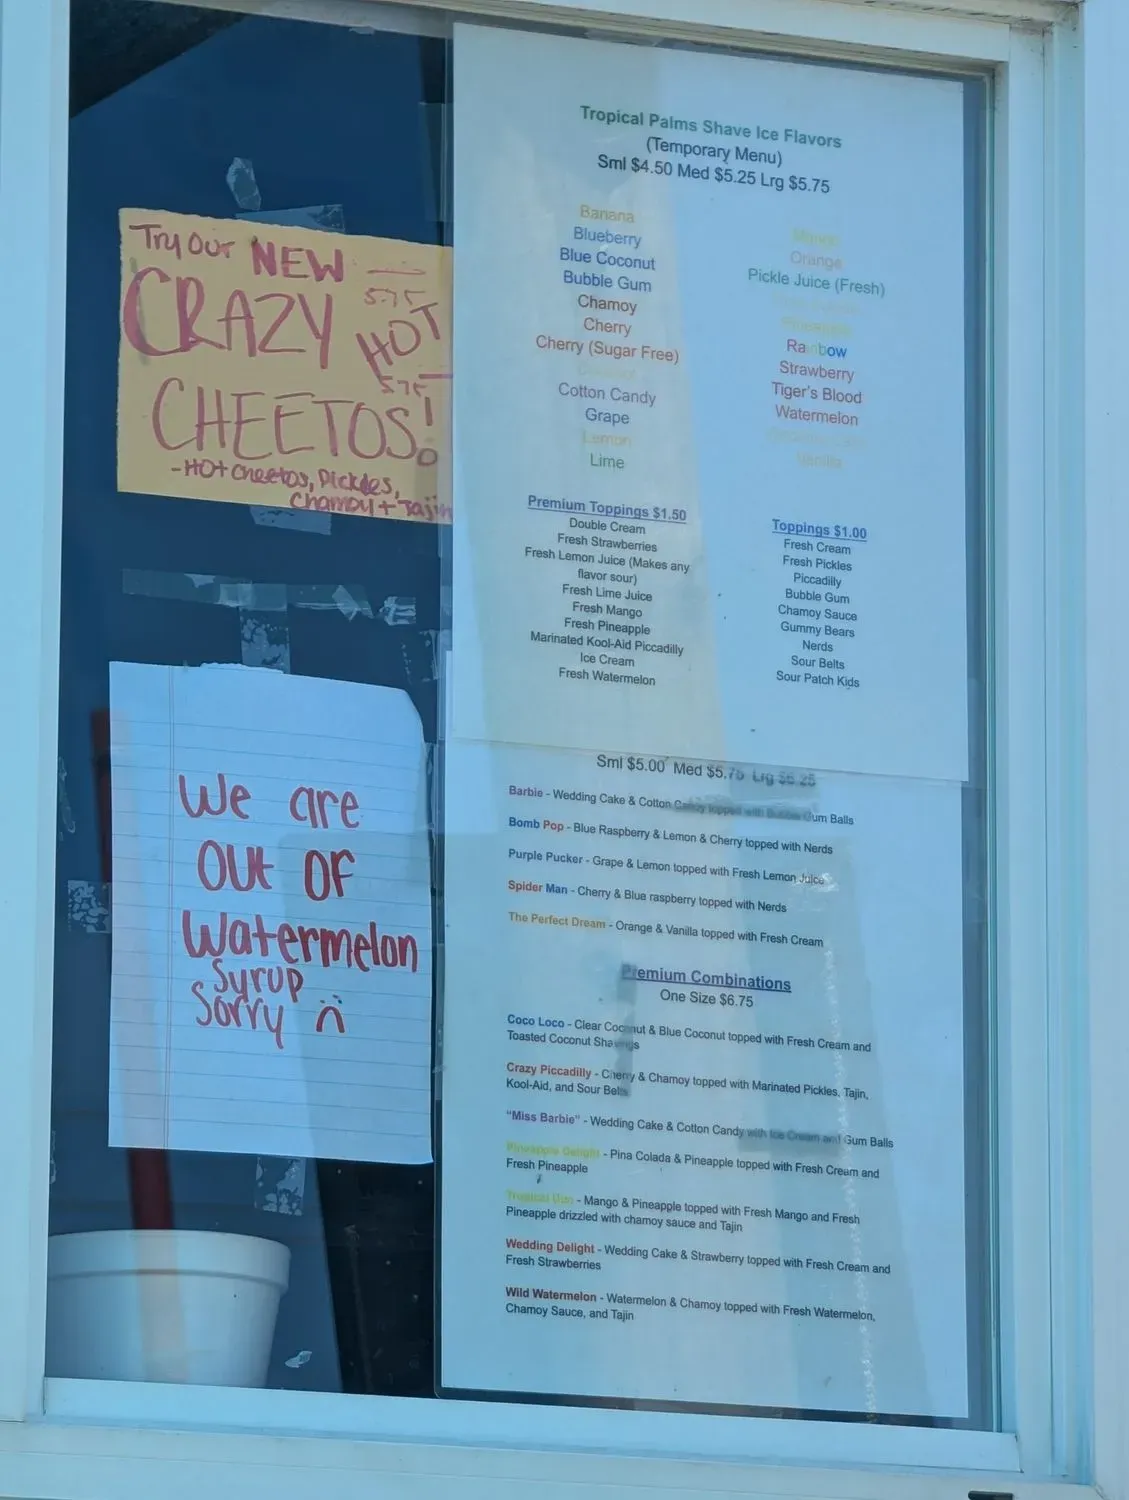 Try our NEW
5.75
CRAZY
HOT
5.75
CHEETOS!
-HOT Cheetos, Pickles,
Chamoy + Tajin
We are
OUT OF
Watermelon
Syrup
Sorry
Tropical Palms Shave Ice Flavors
(Temporary Menu)
Sml $4.50 Med $5.25 Lrg $5.75
Banana
Blueberry
Blue Coconut
Bubble Gum
Chamoy
Cherry
Cherry (Sugar Free)
Coconut
Cotton Candy
Grape
Lemon
Lime
Mango
Orange
Pickle Juice (Fresh)
Pineapple
Rainbow
Strawberry
Tiger's Blood
Watermelon
Vanilla
Premium Toppings $1.50
Double Cream
Fresh Strawberries
Fresh Lemon Juice (Makes any
flavor sour)
Fresh Lime Juice
Fresh Mango
Fresh Pineapple
Marinated Kool-Aid Piccadilly
Ice Cream
Fresh Watermelon
Toppings $1.00
Fresh Cream
Fresh Pickles
Piccadilly
Bubble Gum
Chamoy Sauce
Gummy Bears
Nerds
Sour Belts
Sour Patch Kids
Sml $5.00 Med $5.75 Lrg $6.25
Barbie - Wedding Cake & Cotton Candy topped with Bubble Gum Balls
Bomb Pop - Blue Raspberry & Lemon & Cherry topped with Nerds
Purple Pucker - Grape & Lemon topped with Fresh Lemon Juice
Spider Man - Cherry & Blue raspberry topped with Nerds
The Perfect Dream - Orange & Vanilla topped with Fresh Cream
Premium Combinations
One Size $6.75
Coco Loco - Clear Coconut & Blue Coconut topped with Fresh Cream and
Toasted Coconut Shavings
Crazy Piccadilly - Cherry & Chamoy topped with Marinated Pickles, Tajin,
Kool-Aid, and Sour Belts
"Miss Barbie" - Wedding Cake & Cotton Candy with Ice Cream and Gum Balls
Pineapple Delight - Pina Colada & Pineapple topped with Fresh Cream and
Fresh Pineapple
Tropical - Mango & Pineapple topped with Fresh Mango and Fresh
Pineapple drizzled with chamoy sauce and Tajin
Wedding Delight - Wedding Cake & Strawberry topped with Fresh Cream and
Fresh Strawberries
Wild Watermelon - Watermelon & Chamoy topped with Fresh Watermelon,
Chamoy Sauce, and Tajin